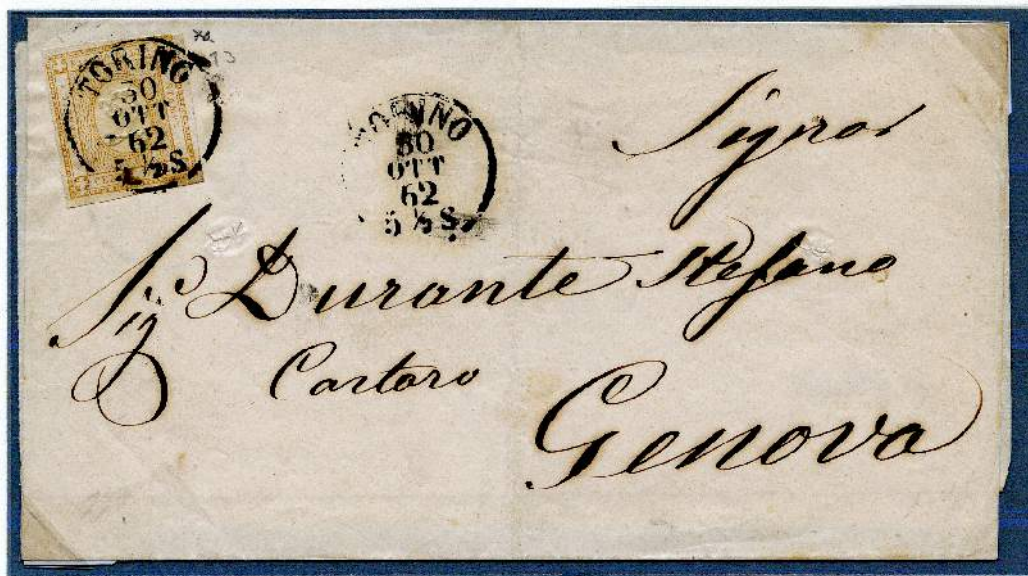 TORINO
30
OTT
62
5 ½ S
TORINO
30
OTT
62
5 ½ S
Signor
Sig Durante Stefano
Cartaro
Genova